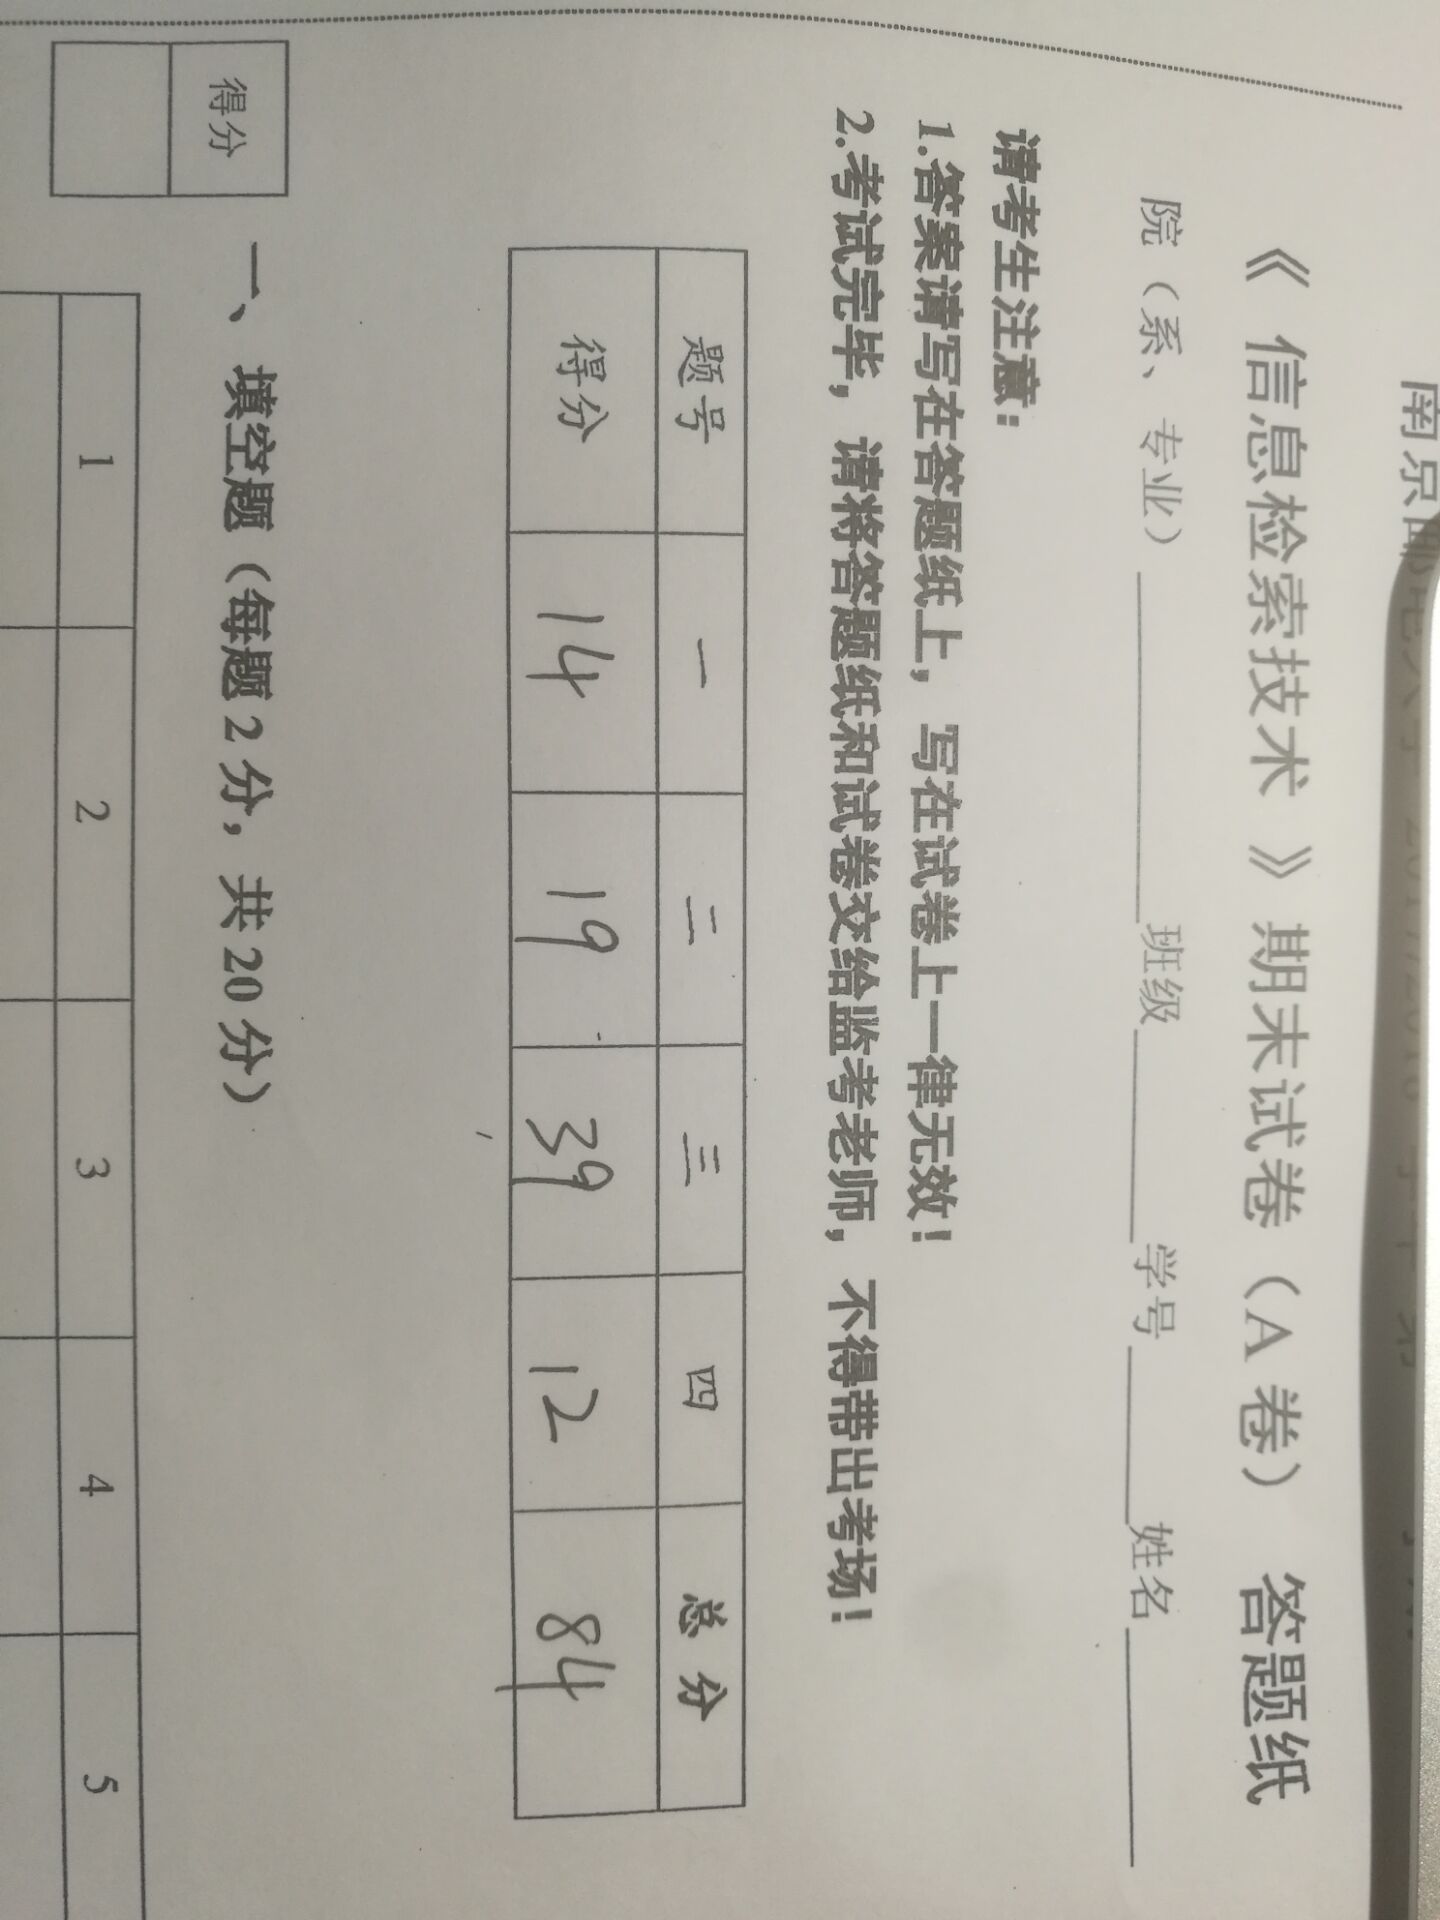 南京邮电大学 2017/2018 学年 第
《 信息检索技术 》期末试卷（A 卷） 答题纸
院（系、专业）班级 学号 姓名
请考生注意：
1.答案请写在答题纸上，写在试卷上一律无效！
2.考试完毕，请将答题纸和试卷交给监考老师，不得带出考场！
题号 一 二 三 四 总分
得分 14 19 39 12 84
得分
一、填空题（每题 2 分，共 20 分）
1 2 3 4 5